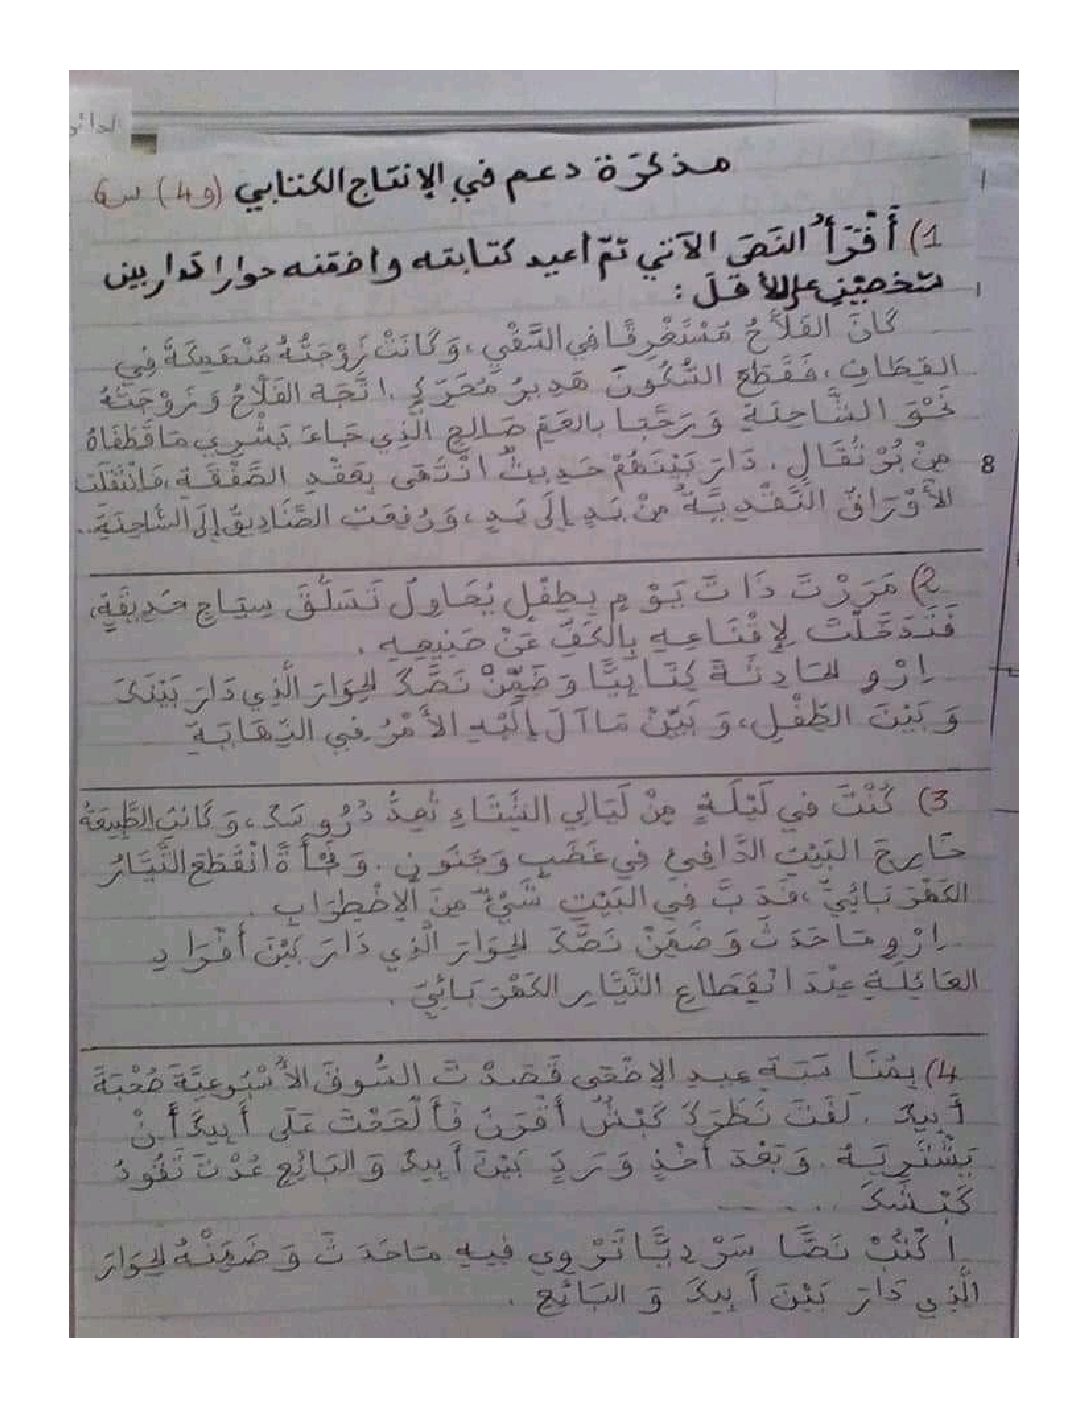 مذكرة دعم في الإنتاج الكتابي (و4) س6
1) أَقْرَأُ النصّ الآتي ثمّ أعيد كتابته وأضمّنه حوارا دار بين
شخصيْن على الأقلّ :
كَانَ الفَلاَّحُ مُسْتَغْرِقًا في السَّقْيِ، وَكَانَتْ زَوْجَتُهُ مُنْهَمِكَةً فِي
القِطَافِ، فَقَطَعَ السُّكُونَ هَدِيرُ مُحَرِّكٍ. اتَّجَهَ الفَلاَّحُ وَزَوْجَتُهُ
نَحْوَ الشَّاحِنَةِ وَرَحَّبَا بِالعَمِّ صَالِحٍ الَّذِي جَاءَ يَشْرِي مَا قَطَفَاهُ
مِنْ بُرْتُقَالٍ. دَارَ بَيْنَهُمْ حَدِيثٌ انْتَهَى بِعَقْدِ الصَّفْقَةِ، فَانْتَقَلَتِ
الأَوْرَاقُ النَّقْدِيَّةُ مِنْ يَدٍ إِلَى يَدٍ، وَرُفِعَتِ الصَّنَادِيقُ إِلَى الشَّاحِنَةِ..
8
2) مَرَرْتَ ذَاتَ يَوْمٍ بِطِفْلٍ يُحَاوِلُ تَسَلُّقَ سِيَاجِ حَدِيقَةٍ،
فَتَدَخَّلْتَ لِإِقْنَاعِهِ بِالكَفِّ عَنْ صَنِيعِهِ .
اِرْوِ الحَادِثَةَ كِتَابِيًّا وَضَمِّنْ نَصَّكَ الحِوَارَ الَّذِي دَارَ بَيْنَكَ
وَبَيْنَ الطِّفْلِ، وَبَيِّنْ مَا آلَ إِلَيْهِ الأَمْرُ فِي النِّهَايَةِ
3) كُنْتَ فِي لَيْلَةٍ مِنْ لَيَالِي الشِّتَاءِ تُعِدُّ دُرُوسَكَ، وَكَانَتِ الطَّبِيعَةُ
خَارِجَ البَيْتِ الدَّافِئِ فِي غَضَبٍ وَجُنُونٍ. وَفَجْأَةً انْقَطَعَ التَّيَّارُ
الكَهْرَبَائِيُّ، فَدَبَّ فِي البَيْتِ شَيْءٌ مِنَ الاِضْطِرَابِ .
اِرْوِ مَا حَدَثَ وَضَمِّنْ نَصَّكَ الحِوَارَ الَّذِي دَارَ بَيْنَ أَفْرَادِ
العَائِلَةِ عِنْدَ انْقِطَاعِ التَّيَّارِ الكَهْرَبَائِيِّ .
4) بِمُنَاسَبَةِ عِيدِ الإِضْحَى قَصَدْتَ السُّوقَ الأُسْبُوعِيَّةَ صُحْبَةَ
أَبِيكَ . لَفَتَ نَظَرَكَ كَبْشٌ أَقْرَنُ فَأَلْحَحْتَ عَلَى أَبِيكَ أَنْ
يَشْتَرِيَهُ. وَبَعْدَ أَخْذٍ وَرَدٍّ بَيْنَ أَبِيكَ وَالبَائِعِ عُدْتَ تَقُودُ
كَبْشَكَ .......
اُكْتُبْ نَصًّا سَرْدِيًّا تَرْوِي فِيهِ مَا حَدَثَ وَضَمِّنْهُ الحِوَارَ
الَّذِي دَارَ بَيْنَ أَبِيكَ وَ البَائِعِ .